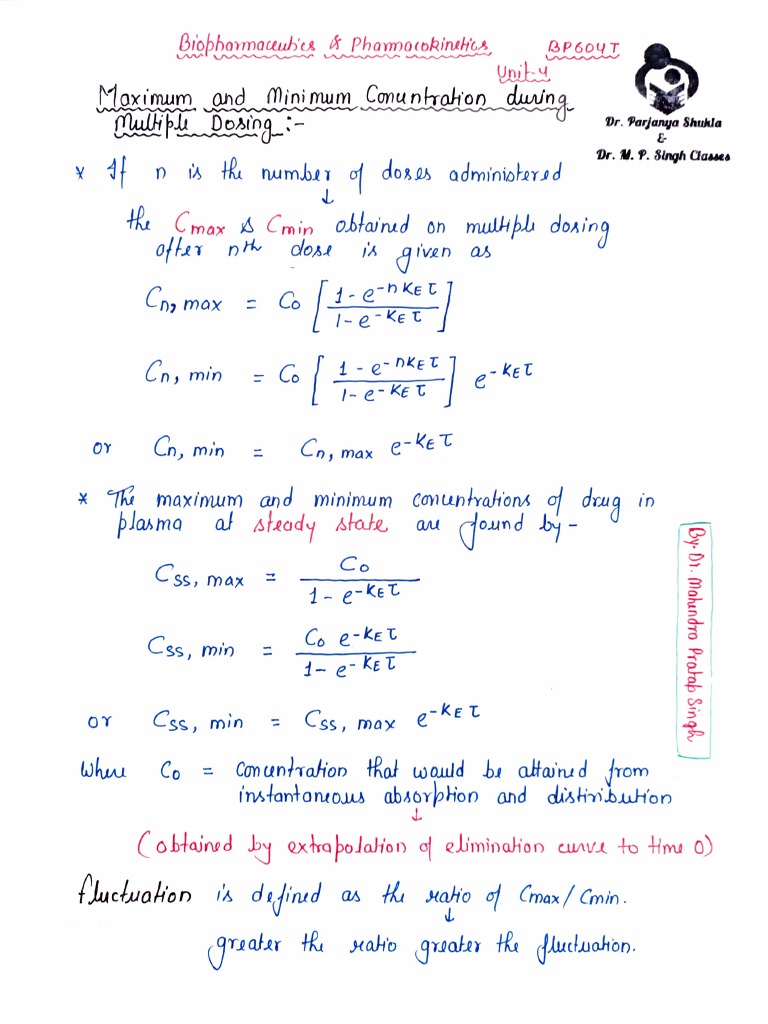 Biopharmaceutics & Pharmacokinetics BP604T
Unit-4
Dr. Parjanya Shukla
&
Dr. M. P. Singh Classes
Maximum and Minimum Concentration during
Multiple Dosing :-
* If n is the number of doses administered
↓
the Cmax & Cmin obtained on multiple dosing
after nth dose is given as
Cn, max = Co [ 1 - e^-nKEτ / 1 - e^-KEτ ]
Cn, min = Co [ 1 - e^-nKEτ / 1 - e^-KEτ ] e^-KEτ
or Cn, min = Cn, max e^-KEτ
* The maximum and minimum concentrations of drug in
plasma at steady state are found by -
Css, max = Co / 1 - e^-KEτ
Css, min = Co e^-KEτ / 1 - e^-KEτ
or Css, min = Css, max e^-KEτ
By- Dr. Mahendra Pratap Singh
Where Co = Concentration that would be attained from
instantaneous absorption and distribution
↓
(obtained by extrapolation of elimination curve to time 0)
Fluctuation is defined as the ratio of Cmax / Cmin.
↓
greater the ratio greater the fluctuation.